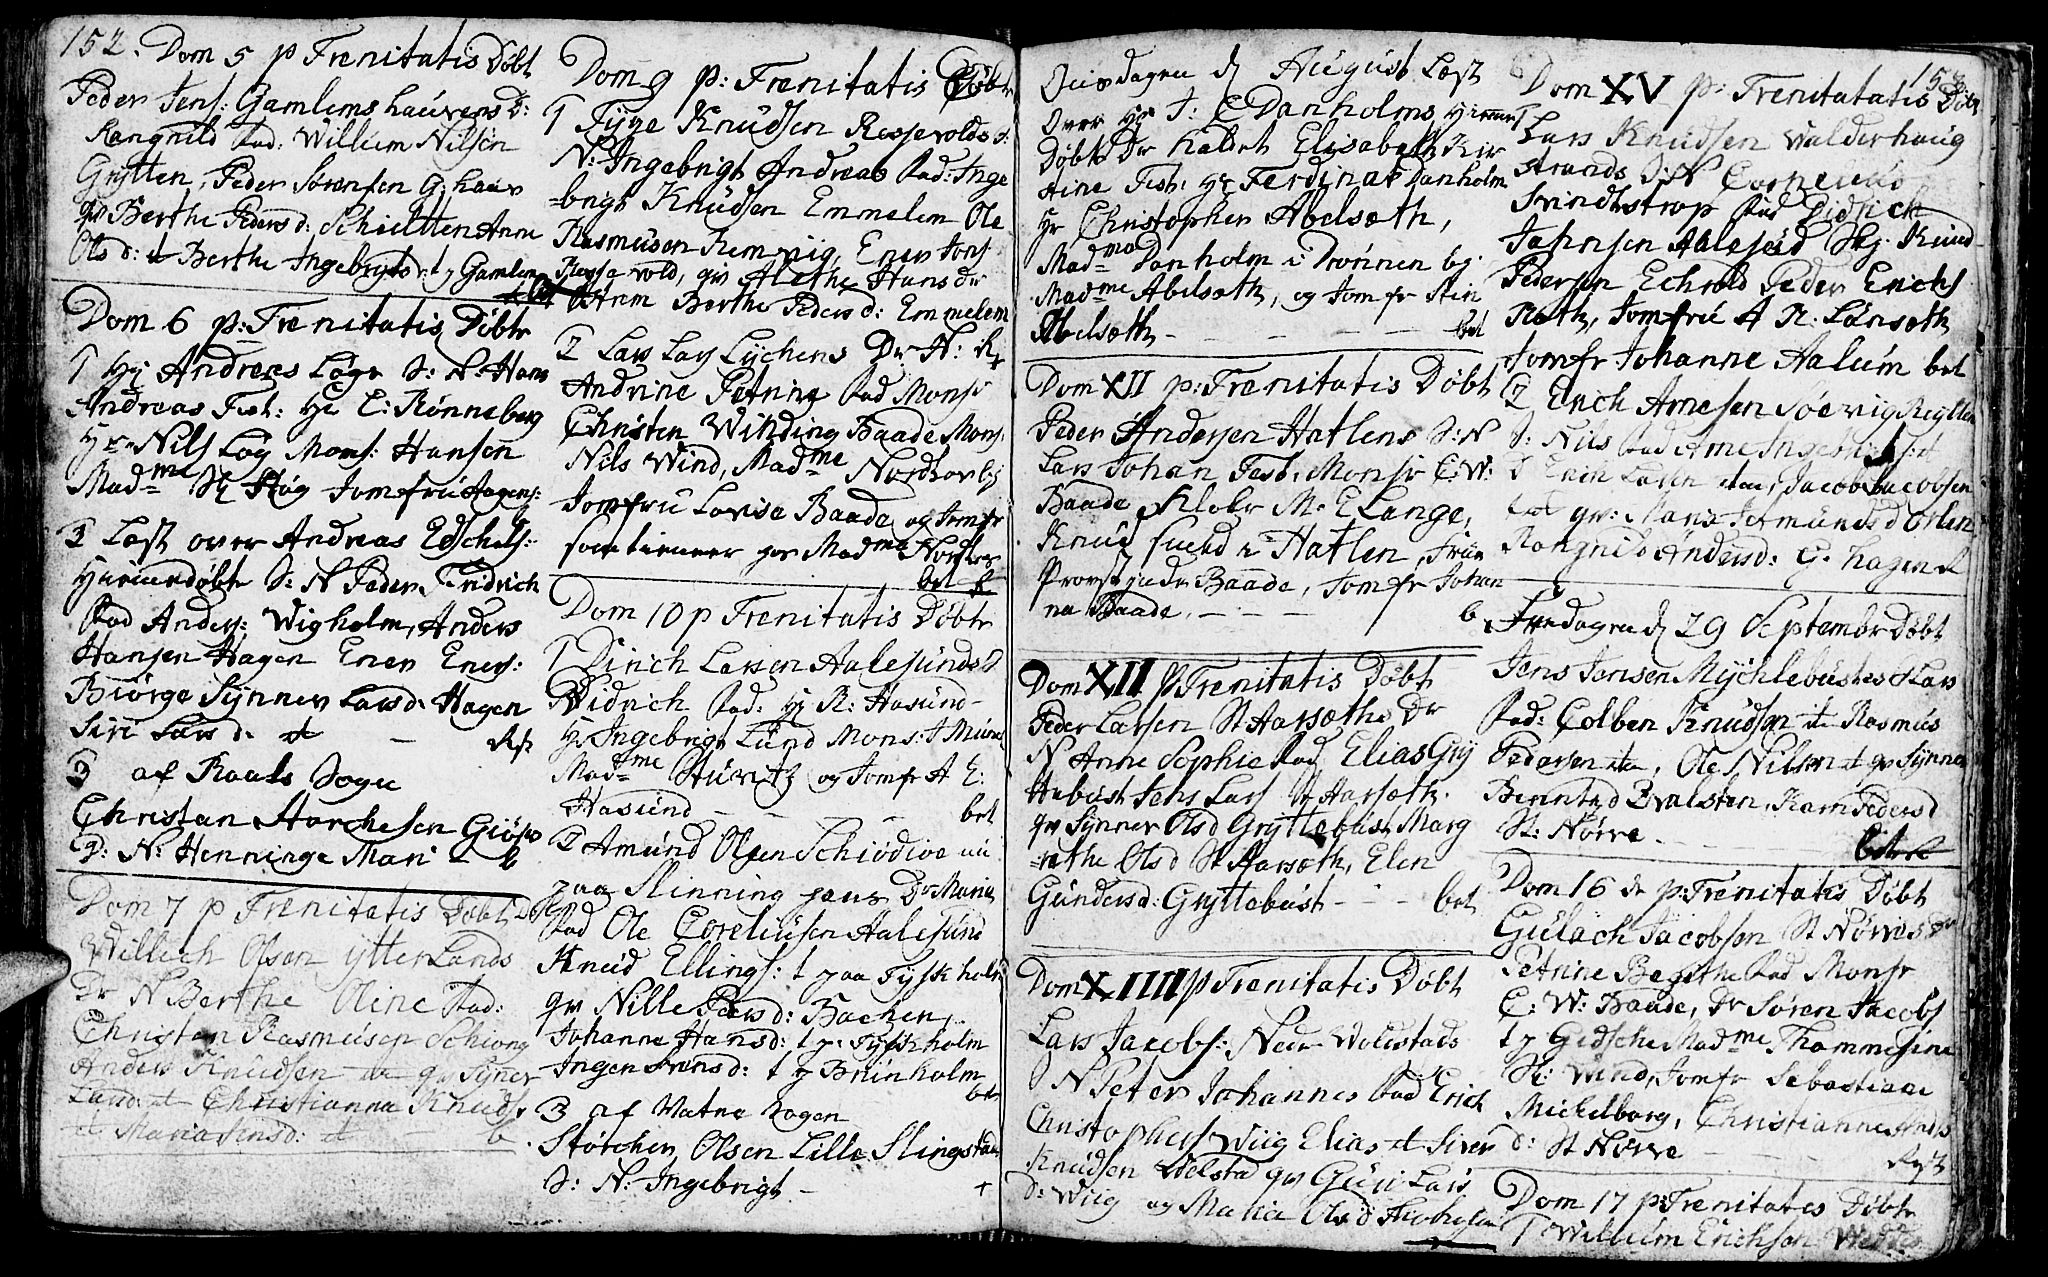 152. Dom 5 p Trenitatis Døbt
Peder Jens: Gamlems hauvens D:
Rangnild Fad: Willum Nilsen
Grytten, Peder Sørensen G: haw
qv Berthe Peders d: Schieltten Anne
Ols d: it Berthe Ingebrigts d: t y Gamlem
Dom 6 p: Trenitatis Døbtr
1 Hr Andreas Løgs S: N: Hans
Andreas Test: Hr C: Rønneberg
Hr Nils Løg Mons: Hansen
Madme Høg Jomfru Hagens:
2 Læst over Andreas Edschels:
Hiemmedøbte S: N Peder Fridrich
Fad Anders: Wigholm, Anders
Hansen Hagen Enev Enevs:
Biørge Synnev Larsd: Hagen
Siri Lars d: it -
3 af Raals Sogn
Christan Starchesen Giøs
D: N: Henninge Mari - b
Dom 7 p Trenitatis Døbt
Willich Olsen ytterLands
Dr N Berthe Oline Fad:
Christen Rasmusen Schiong
Anders Knudsen it qv Syner
Land: it Christianna Knuds
it Maria Jensd: it b
Dom 9 p: Trenitatis Døbtr
1 Tyge Knudsen Ressevolds S:
N: Ingebrigt Andreas Fad: Inge
=brigt Knudsen Emmelem Ole
Rasmusen Remvig, Enev Jons
Ressevold, qv Alethe Hans dr
Anne Berthe Peders d: Emmelem
2 Lars Lars Lychens Dr N:
Andrine Petrine Fad Monsr
Christen Winding Baade Mons:
Nils Wind, Madme Nordhov
Jomfru Lovise Baade og Jomfr
for Madme Nordhov
bet
Dom 10 p Trenitatis Døbtr
1 Dirich Larsen Aalesunds S
Didrich Fad: Hr R: Hasund-
Hr Ingebrigt Lund Mons: J Munch
Madme Sturitz og Jomfr A E:
Hasund - - - bet
2 Amund Olsen Schiodvo nu
paa Slinning hans Dr Maria
Fad Ole Corelíusen Aalesund
Knud Ellings: t paa Tyskholm
qv Nille Peders d: Bachen,
Johanna Hansd: t y Tyskholm
Ingen Svensd: t y Brunholm
bet
3 af Vatne Sogen
Størcher Olsen Lille Slingstad
S: N: Ingebrigt -
Onsdagen d August Læst
over Hr J: C Danholms Hiemme
Døbte Dr kaldet Elisabeth Kir
stine Test: Hr Ferdinat Danholm
Hr Christopher Abelsæth,
Madme Danholm i Drønnen bg.
Madme Abelsæth, og Jomfr Stin
Abelsæth - - - bet
Dom XII p: Trenitatis Døbt
Peder Andersen Hatlens S: N
Lars Johan Test: Monsr C: W:
Baade Klokr M: E Lange,
Knud fued i Hatlen, Frue
Provstjnde Baade, Jomfr Johan
na Baade. - - - b
Dom XII p Trenitatis Døbt
Peder Larsen St Aarsæths Dr
N Anne Sophie Fad Elias Gry
tebust Jens Lars St Aarsæth.
qv Synnev Olsd Gryttebust Marg
=rethe Olsd St Aarsæth, Elen
Gundersd: Gryttebust - - - bet
Dom XIIII p Trenitatis Døbt
Lars Jacobs: Nedr Wollstads
S N Peter Johannes Fad Erich
Christophers Wiig Elias it Siver
Knudsen Welstad qv Guri Lars
d: Wiig og Maria Olsd
153
Dom XV p: Trenitatatis Døbt
1 Lars Knudsen Walderhaug
strands S: N Cornelius
Svindstrop Fad Didrich
Jahnsen Aalesund Skj. Knud
Pedersen Echrold Peder Erichs
Roth, Jomfru A R: Lønsæth
Jomfr Johanne Aalum bet
2 Erich Arnesen Søevig Regtten
S: Nils Fad Arne Ingebrigts: it
Erich Lasen itm, Jacob Jacobsen
qv: Maria Jetmunds d Orten
Rangnild Andersd: G: hagen
Søndagen d 29 September Døbt
Jens Jensen Mychlebustes S Lars
Fad: Colben Knudsen it Rasmus
Pedersen itm, Ole Nilsen it qv Synnev
Berntsd Evalsten, Karn Peders d
St: Nørve - -
Dom 16 de p: Trenitatis Døbt
Gulach Jacobsen St Nørves Dr
Petrine Begithe Fad Monsr
C: W: Baade, Dr Søren Jacobs
t y Gidsche Madme Thommesine
Sl: Wind, Jomfr Sebastiane
Mickelborg, Christianne Anders
d: St Nørve - -
Dom 17 p: Trenitates Døbtr
1 Willum Erichsen